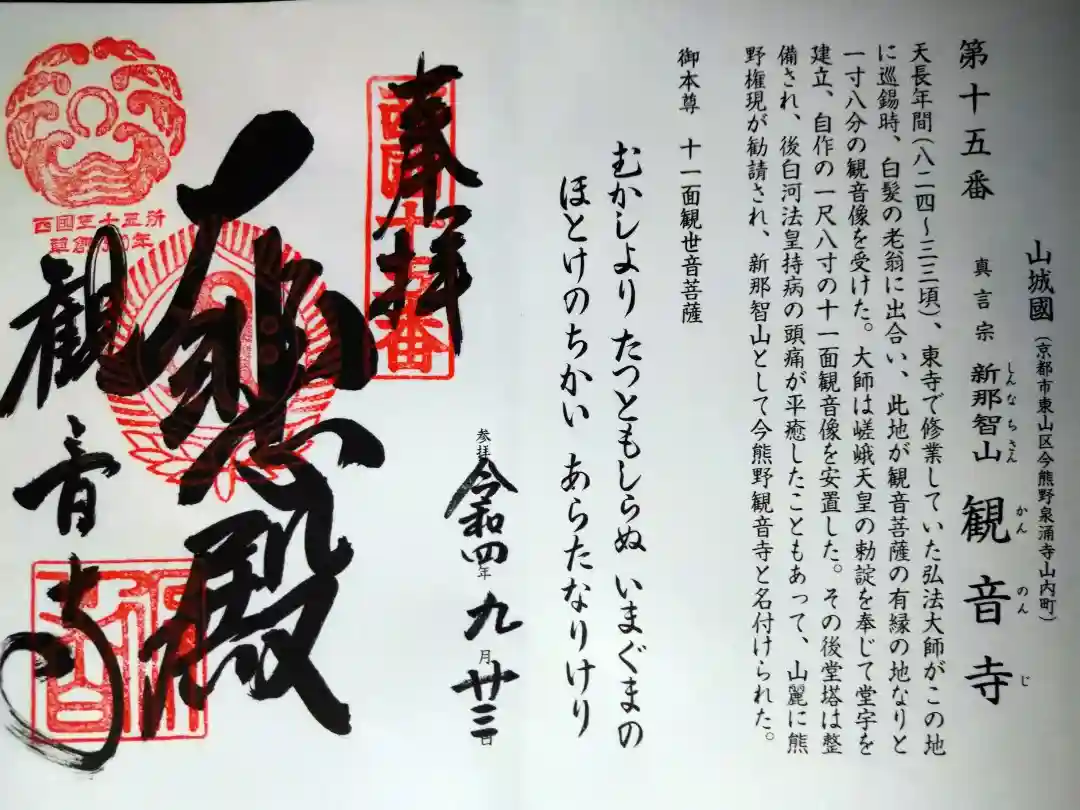 山城國(京都市東山区今熊野泉涌寺山内町)
第十五番 真言宗 新那智山 観音寺
しんなちさん かんのんじ
天長年間(八二四〜三三頃)、東寺で修業していた弘法大師がこの地
に巡錫時、白髪の老翁に出合い、此地が観音菩薩の有縁の地なりと
一寸八分の観音像を受けた。大師は嵯峨天皇の勅諚を奉じて堂宇を
建立、自作の一尺八寸の十一面観音像を安置した。その後堂塔は整
備され、後白河法皇持病の頭痛が平癒したこともあって、山麗に熊
野権現が勧請され、新那智山として今熊野観音寺と名付けられた。
御本尊 十一面観世音菩薩
むかしより たつともしらぬ いまぐまの
ほとけのちかい あらたなりけり
参拝 令和四年九月廿三日
奉拝
西國十五番
大悲殿
観音寺
西國三十三所
草創1300年